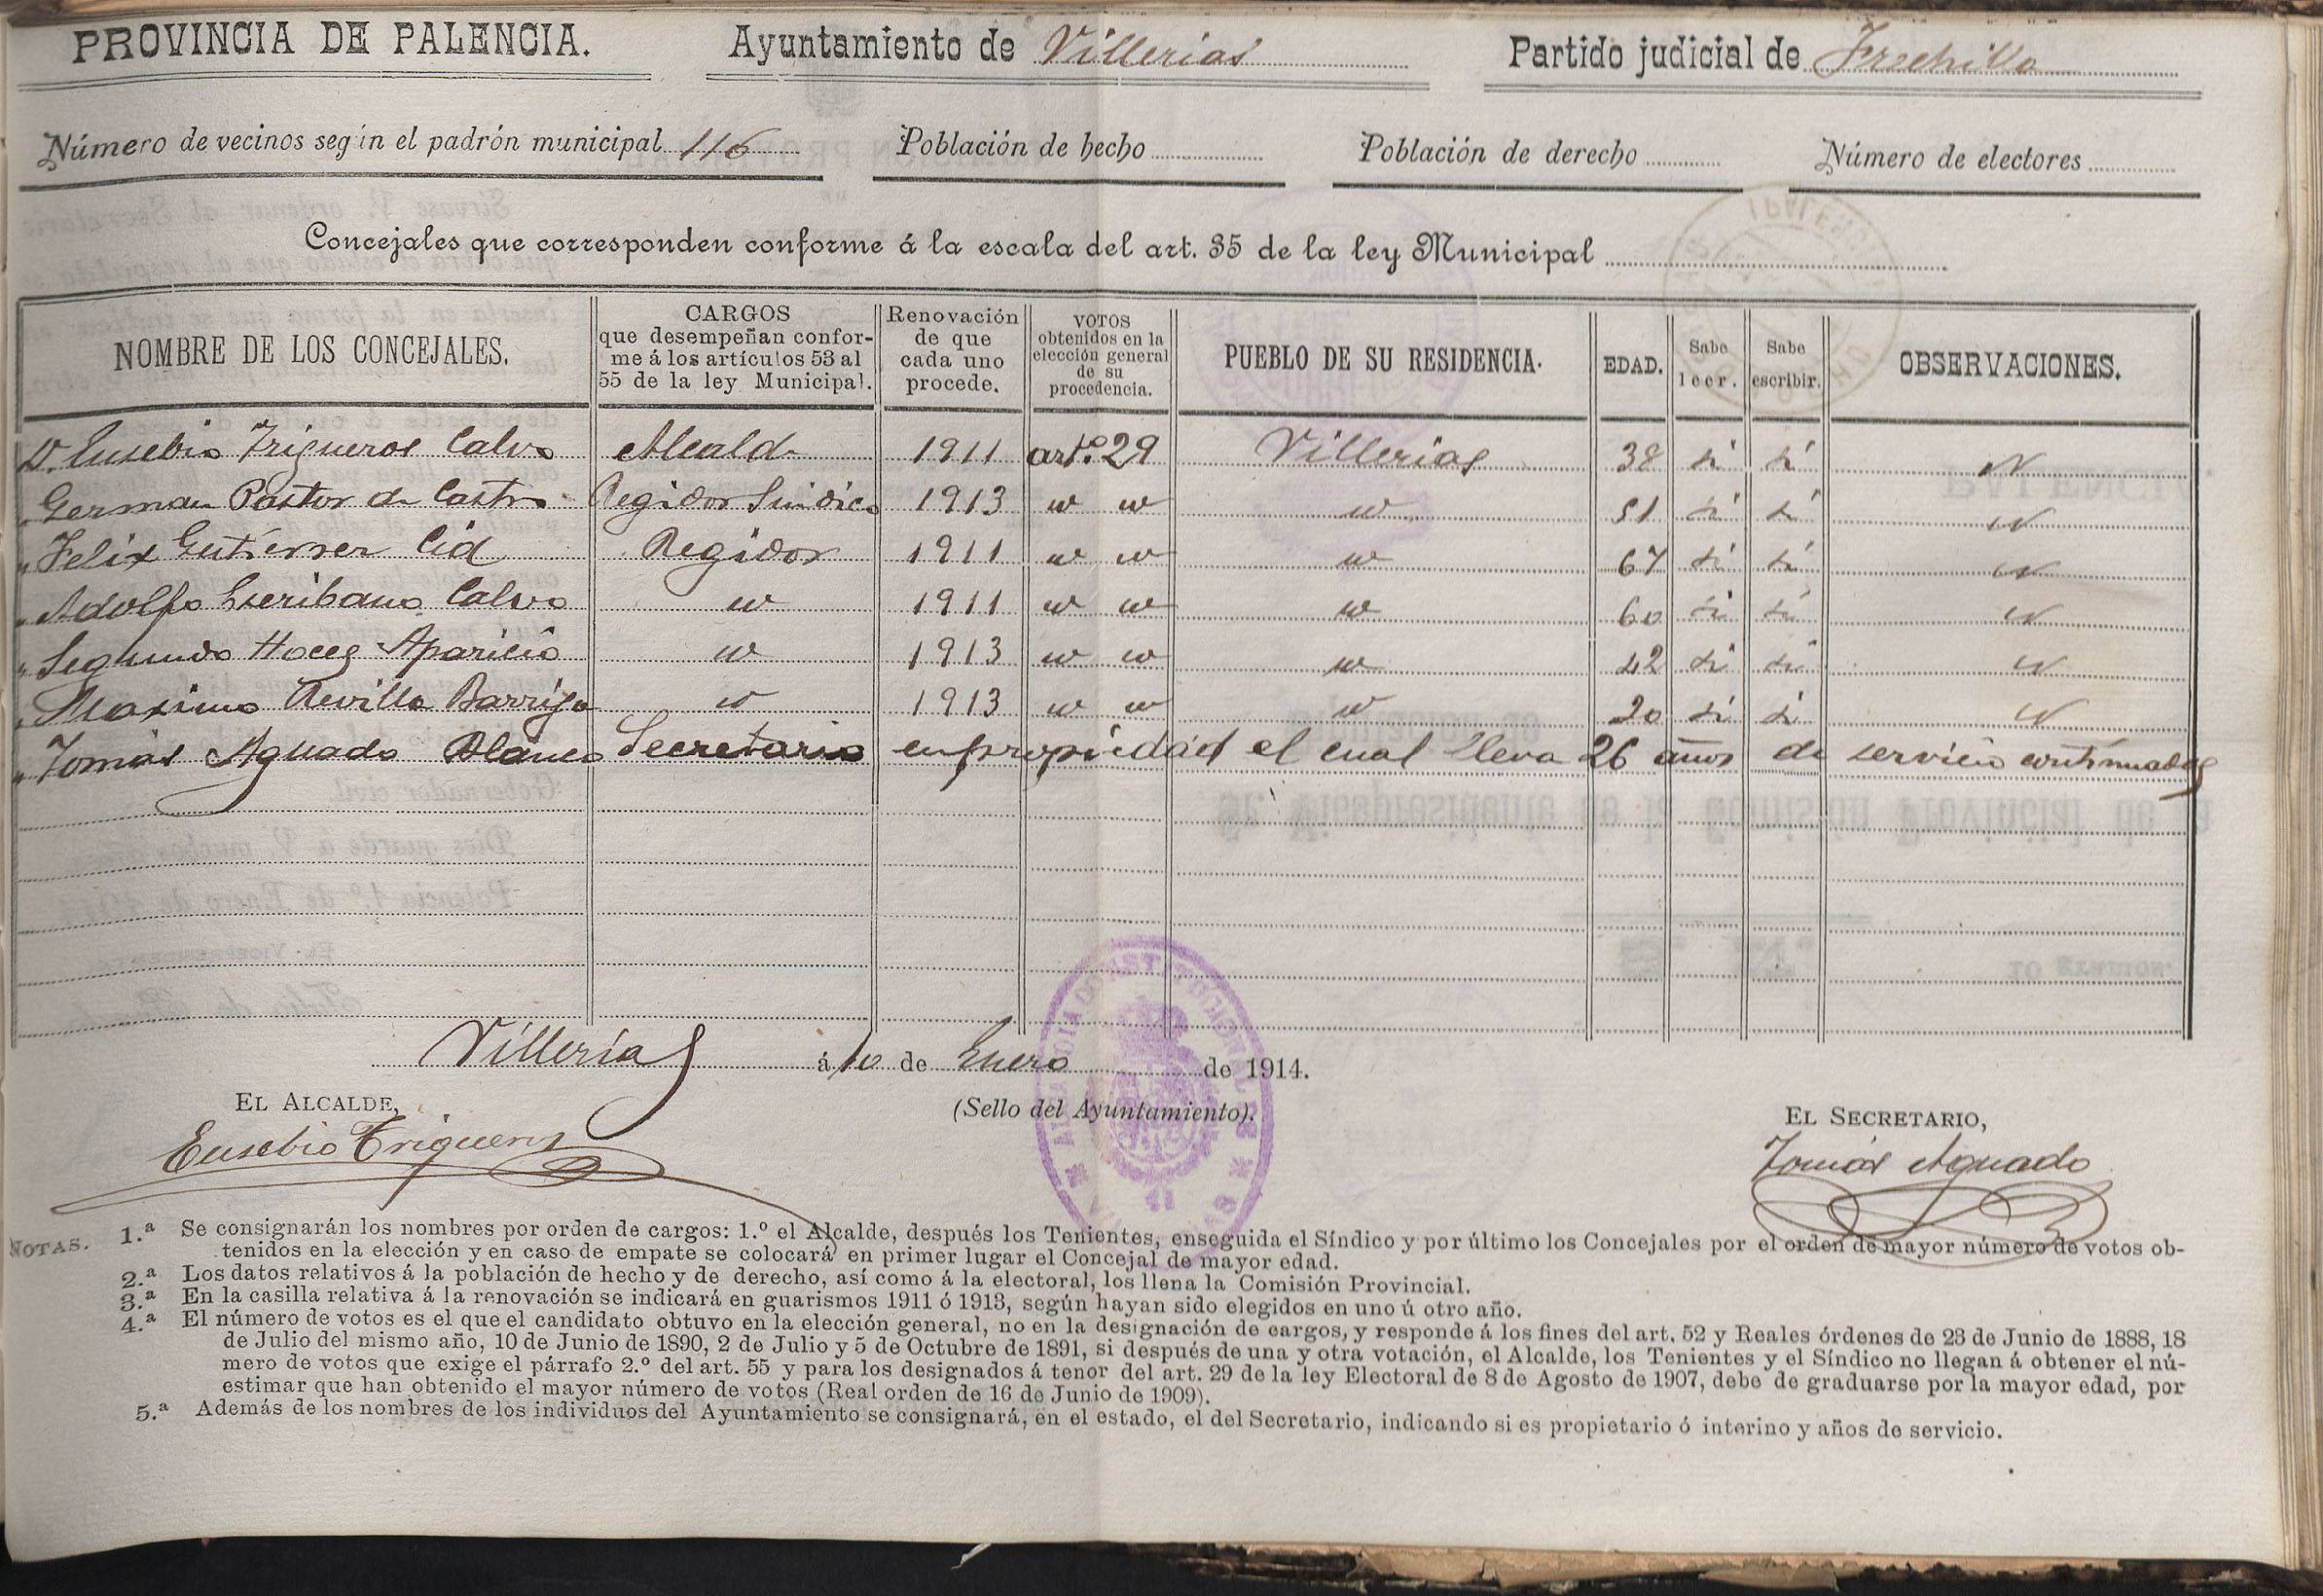 PROVINCIA DE PALENCIA. Ayuntamiento de Villerias Partido judicial de Frechilla
Número de vecinos según el padrón municipal 116 Población de hecho Población de derecho Número de electores
Concejales que corresponden conforme á la escala del art. 35 de la ley Municipal
NOMBRE DE LOS CONCEJALES. CARGOS que desempeñan conforme á los artículos 53 al 55 de la ley Municipal. Renovación de que cada uno procede. VOTOS obtenidos en la elección general de su procedencia. PUEBLO DE SU RESIDENCIA. EDAD. Sabe leer. Sabe escribir. OBSERVACIONES.
D. Eusebio Trigueros Calvo Alcalde 1911 artº. 29 Villerias 38 si si "
" German Pastor de Castro Regidor Sindico 1913 " " " 51 si si "
" Felix Gutierrez Cid Regidor 1911 " " " 67 si si "
" Adolfo Escribano Calvo " 1911 " " " 60 si si "
" Segundo Hoces Aparicio " 1913 " " " 42 si si "
" Maximo Revilla Barriga " 1913 " " " 20 si si "
" Tomás Aguado Blanco Secretario en propiedad el cual lleva 26 años de servicio continuados
Villerias á 10 de Enero de 1914.
EL ALCALDE, (Sello del Ayuntamiento). EL SECRETARIO,
Eusebio Trigueros Tomás Aguado
NOTAS. 1.ª Se consignarán los nombres por orden de cargos: 1.º el Alcalde, después los Tenientes, enseguida el Síndico y por último los Concejales por el orden de mayor número de votos ob-
tenidos en la elección y en caso de empate se colocará en primer lugar el Concejal de mayor edad.
2.ª Los datos relativos á la población de hecho y de derecho, así como á la electoral, los llena la Comisión Provincial.
3.ª En la casilla relativa á la renovación se indicará en guarismos 1911 ó 1913, según hayan sido elegidos en uno ú otro año.
4.ª El número de votos es el que el candidato obtuvo en la elección general, no en la designación de cargos, y responde á los fines del art. 52 y Reales órdenes de 23 de Junio de 1888, 18
de Julio del mismo año, 10 de Junio de 1890, 2 de Julio y 5 de Octubre de 1891, si después de una y otra votación, el Alcalde, los Tenientes y el Síndico no llegan á obtener el nú-
mero de votos que exige el párrafo 2.º del art. 55 y para los designados á tenor del art. 29 de la ley Electoral de 8 de Agosto de 1907, debe de graduarse por la mayor edad, por
estimar que han obtenido el mayor número de votos (Real orden de 16 de Junio de 1909).
5.ª Además de los nombres de los individuos del Ayuntamiento se consignará, en el estado, el del Secretario, indicando si es propietario ó interino y años de servicio.